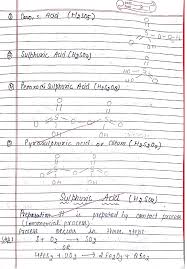 ① Caro's Acid (H₂SO₅)
② Sulphuric Acid (H₂SO₄)
③ Peroxodisulphuric Acid (H₂S₂O₈)
④ Pyrosulphuric acid or Oleum (H₂S₂O₇)
Sulphuric Acid (H₂SO₄)
Preparation It is prepared by contact process
(commercial process)
Process occurs in three steps
Step 1 S + O₂ → SO₂
OR
4FeS₂ + 11O₂ → 2Fe₂O₃ + 8SO₂